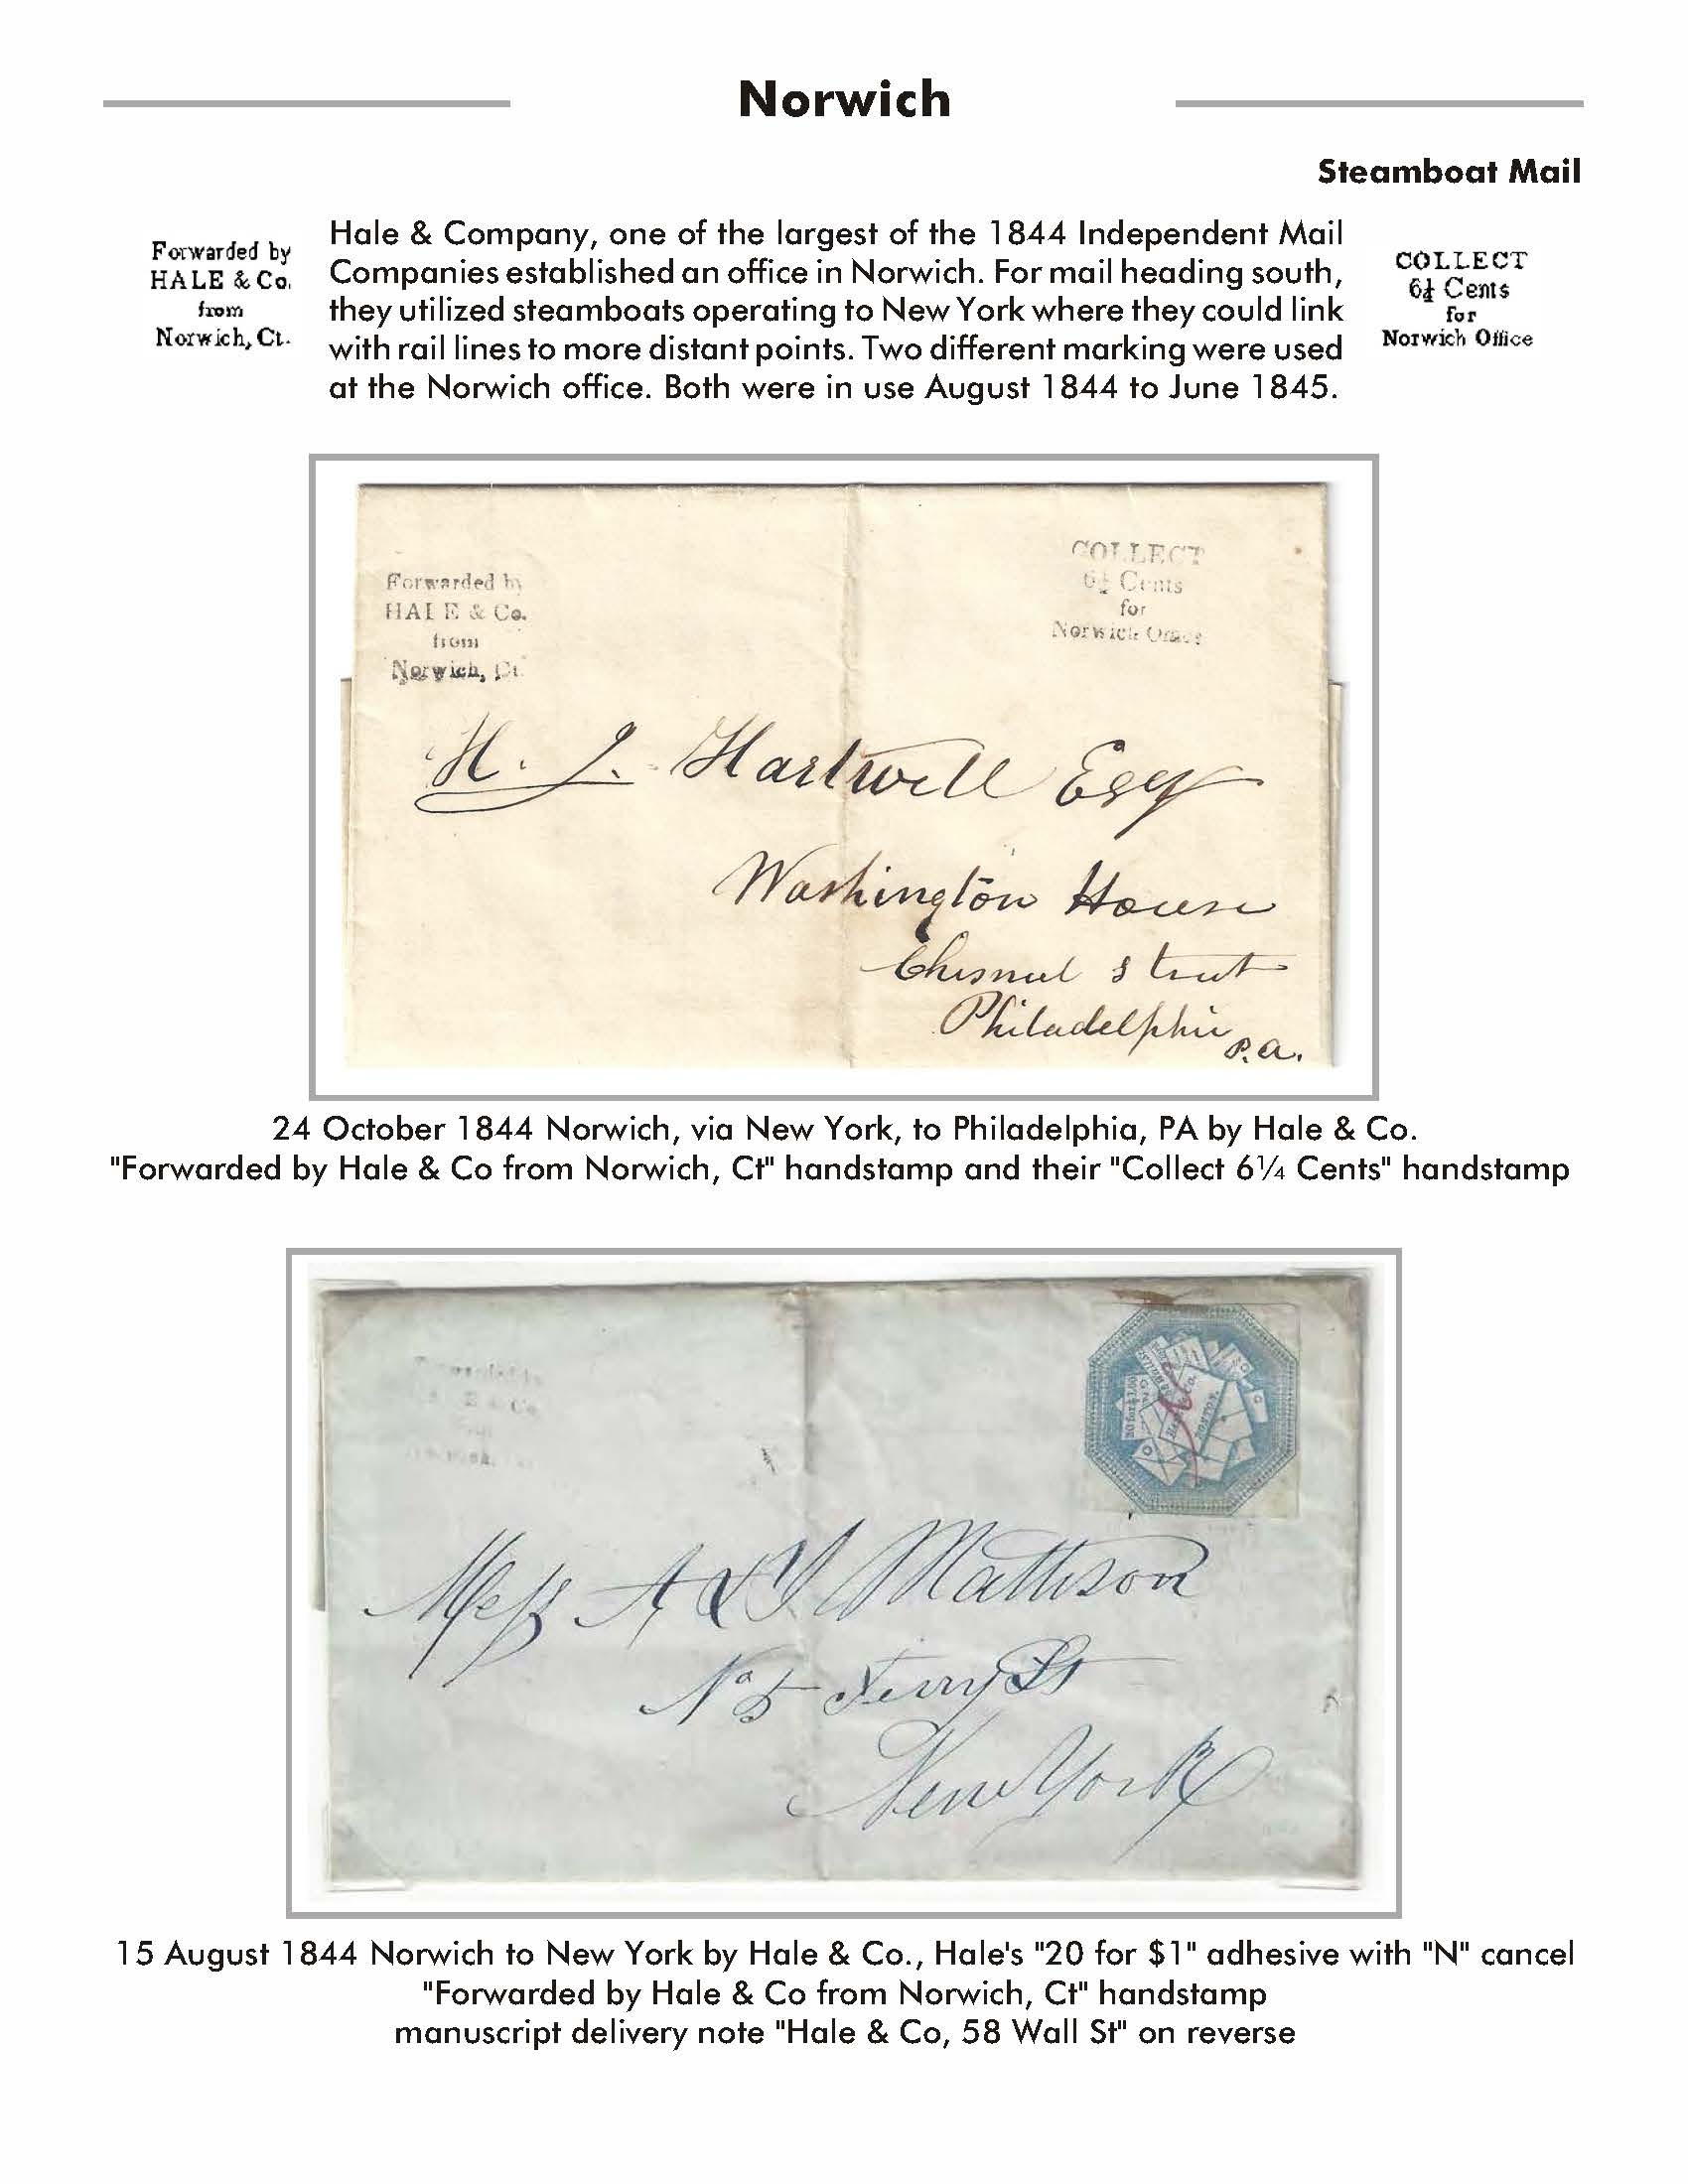 Norwich
Steamboat Mail
Forwarded by
HALE & Co.
from
Norwich, Ct.
Hale & Company, one of the largest of the 1844 Independent Mail
Companies established an office in Norwich. For mail heading south,
they utilized steamboats operating to New York where they could link
with rail lines to more distant points. Two different marking were used
at the Norwich office. Both were in use August 1844 to June 1845.
COLLECT
6¼ Cents
for
Norwich Office
Forwarded by
HALE & Co.
from
Norwich, Ct.
COLLECT
6¼ Cents
for
Norwich Office
H. J. Hartwell Esq
Washington House
Chesnut Street
Philadelphia
P.A.
24 October 1844 Norwich, via New York, to Philadelphia, PA by Hale & Co.
"Forwarded by Hale & Co from Norwich, Ct" handstamp and their "Collect 6¼ Cents" handstamp
20 for $1.00
Hale & Co.
BOSTON
N
Mess A & J Mattison
No 5 Ferry St
New York
15 August 1844 Norwich to New York by Hale & Co., Hale's "20 for $1" adhesive with "N" cancel
"Forwarded by Hale & Co from Norwich, Ct" handstamp
manuscript delivery note "Hale & Co, 58 Wall St" on reverse